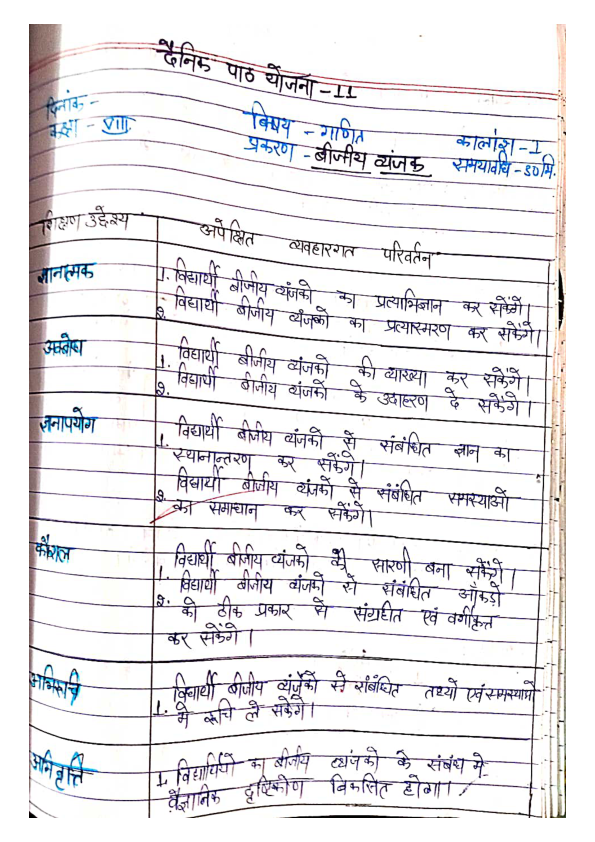 दैनिक पाठ योजना - 11
दिनांक -
कक्षा - VIII
विषय - गणित
प्रकरण - बीजीय व्यंजक
कालांश - I
समयावधि - 30 मि.
शिक्षण उद्देश्य
अपेक्षित व्यवहारगत परिवर्तन
ज्ञानात्मक
1. विद्यार्थी बीजीय व्यंजको का प्रत्याभिज्ञान कर सकेंगे।
2. विद्यार्थी बीजीय व्यंजको का प्रत्यास्मरण कर सकेंगे।
अवबोध
1. विद्यार्थी बीजीय व्यंजको की व्याख्या कर सकेंगे।
2. विद्यार्थी बीजीय व्यंजको के उदाहरण दे सकेंगे।
ज्ञनापयोग
1. विद्यार्थी बीजीय व्यंजको से संबंधित ज्ञान का
स्थानान्तरण कर सकेंगे।
2. विद्यार्थी बीजीय व्यंजको से संबंधित समस्याओं
का समाधान कर सकेंगे।
कौशल
1. विद्यार्थी बीजीय व्यंजको की सारणी बना सकेंगे।
2. विद्यार्थी बीजीय व्यंजको से संबंधित आँकड़ो
को ठीक प्रकार से संग्रहीत एवं वर्गीकृत
कर सकेंगे।
अभिरूचि
1. विद्यार्थी बीजीय व्यंजको से संबंधित तथ्यों एवं समस्याओं
मे रूचि ले सकेंगे।
अभिवृत्ति
1. विद्यार्थियों का बीजीय व्यंजको के संबंध मे
वैज्ञानिक दृष्टिकोण विकसित होगा।